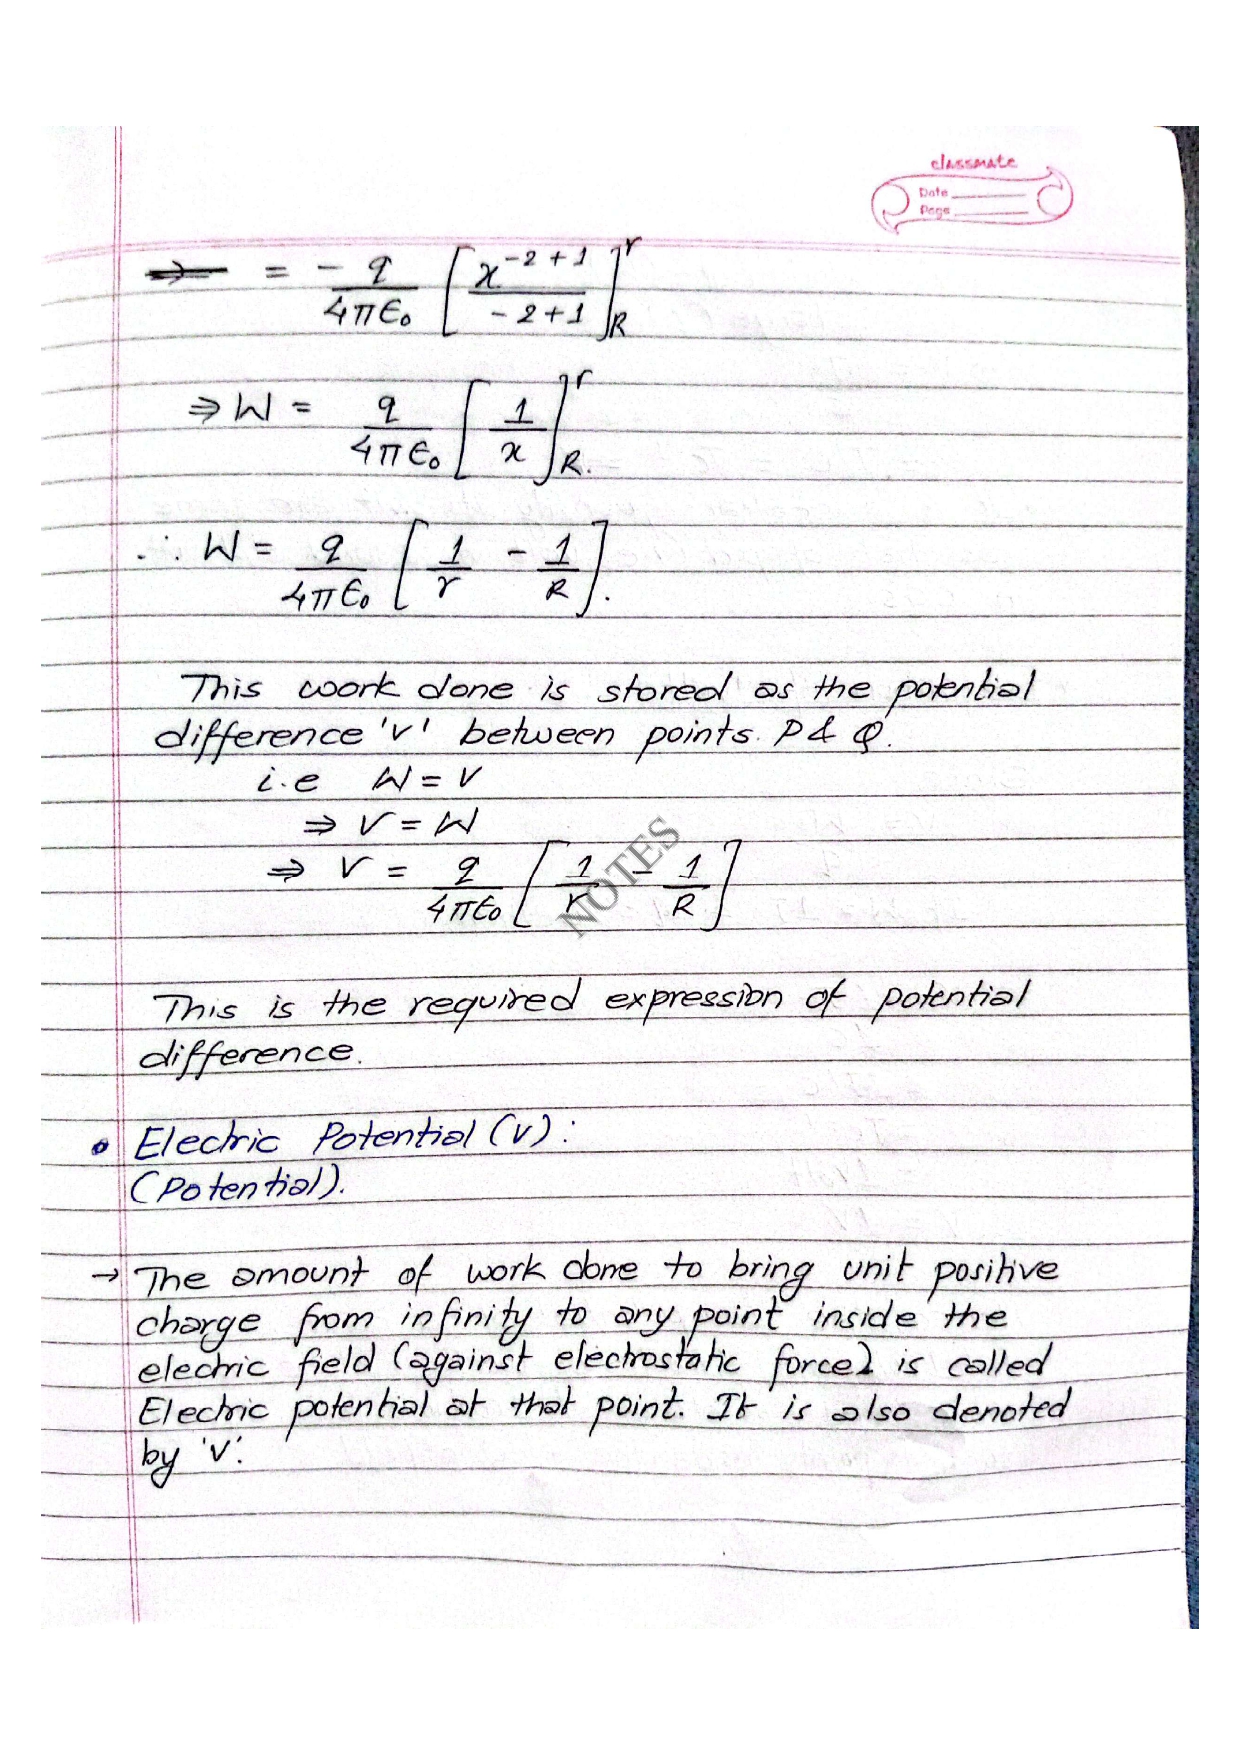 classmate
Date
Page
= - q/4πϵ₀ [x^(-2+1)/(-2+1)]_R^r
⇒ W = q/4πϵ₀ [1/x]_R^r.
∴ W = q/4πϵ₀ [1/r - 1/R].
This work done is stored as the potential
difference 'V' between points P & Q.
i.e W = V
⇒ V = W
⇒ V = q/4πϵ₀ [1/r - 1/R]
NOTES
This is the required expression of potential
difference.
• Electric Potential (V):
(Potential).
→ The amount of work done to bring unit positive
charge from infinity to any point inside the
electric field (against electrostatic force) is called
Electric potential at that point. It is also denoted
by 'V'.